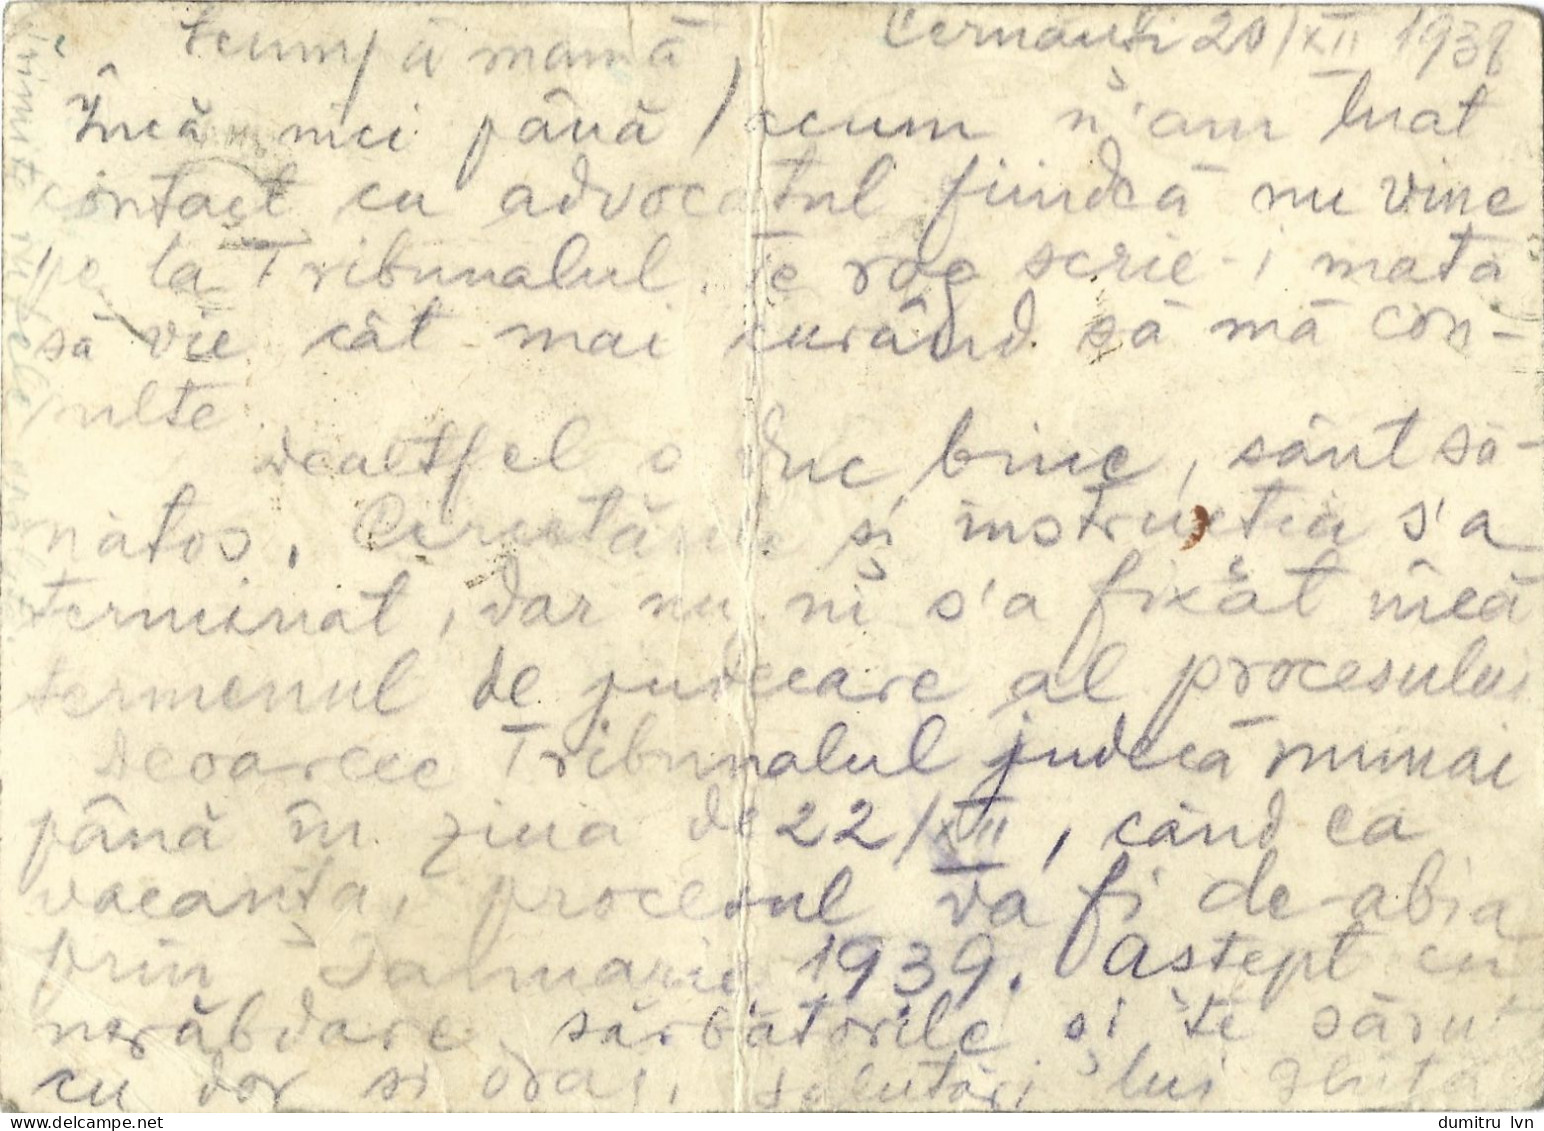 Cernăuți 20/XII 1938
Scumpă mamă,
Încă nici până acum n'am luat
contact cu advocatul fiindcă nu vine
pe la Tribunalul. Te rog scrie-i mata
să vie cât mai curând să mă con-
sulte.
Dealtfel o duc bine, sânt să-
nătos. Cercetările și instrucția s'a
terminat, dar nu ni s'a fixat încă
termenul de judecare al procesului
deoarece Tribunalul judecă numai
până în ziua de 22/XII, când ea
vacanța, procesul va fi de-abia
prin Ianuarie 1939. Aștept cu
nerăbdare sărbătorile și te sărut
cu dor și drag, salutări lui
Trimite
dumitru lvn